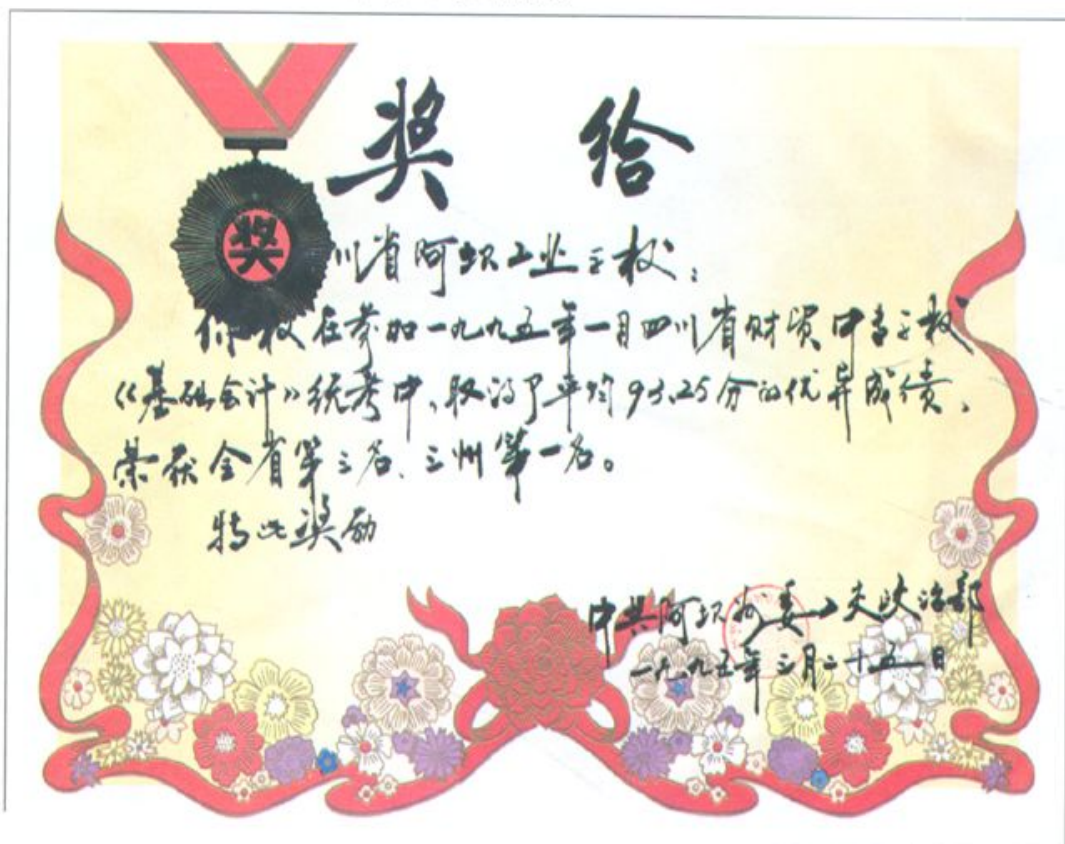 奖 给
奖
川省阿坝工业学校：
你校在参加一九九五年一月四川省财贸中专学校
《基础会计》统考中,取得了平均93.25分的优异成绩,
荣获全省第三名、三州第一名。
特此奖励
中共阿坝州委工交政治部
一九九五年三月二十五日